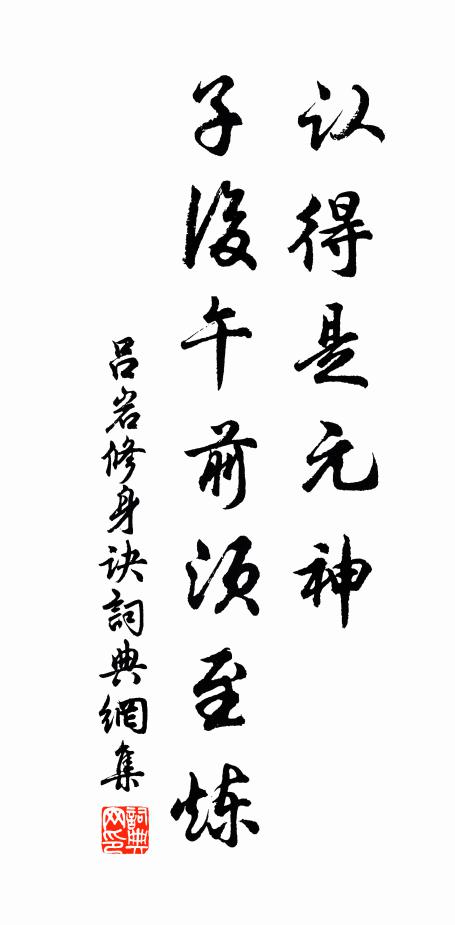 认得是元神
子後午前须至炼
吕岩修身诀詞典網集
詞典
网印